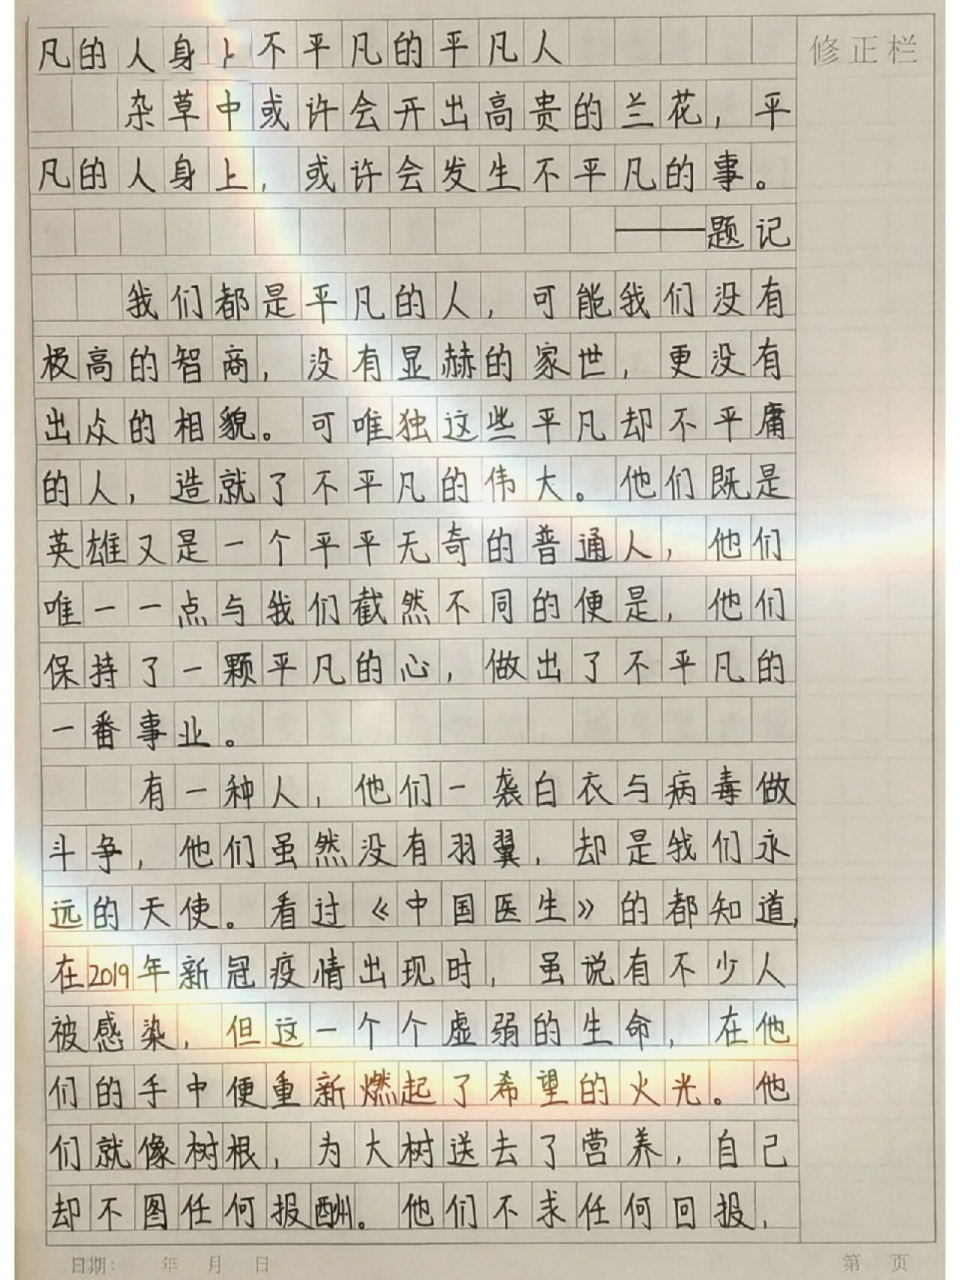 凡的人身上不平凡的平凡人
修正栏
杂草中或许会开出高贵的兰花，平
凡的人身上，或许会发生不平凡的事。
——题记
我们都是平凡的人，可能我们没有
极高的智商，没有显赫的家世，更没有
出众的相貌。可唯独这些平凡却不平庸
的人，造就了不平凡的伟大。他们既是
英雄又是一个平平无奇的普通人，他们
唯一一点与我们截然不同的便是，他们
保持了一颗平凡的心，做出了不平凡的
一番事业。
有一种人，他们一袭白衣与病毒做
斗争，他们虽然没有羽翼，却是我们永
远的天使。看过《中国医生》的都知道，
在2019年新冠疫情出现时，虽说有不少人
被感染，但这一个个虚弱的生命，在他
们的手中便重新燃起了希望的火光。他
们就像树根，为大树送去了营养，自己
却不图任何报酬。他们不求任何回报，
日期： 年 月 日
第 页